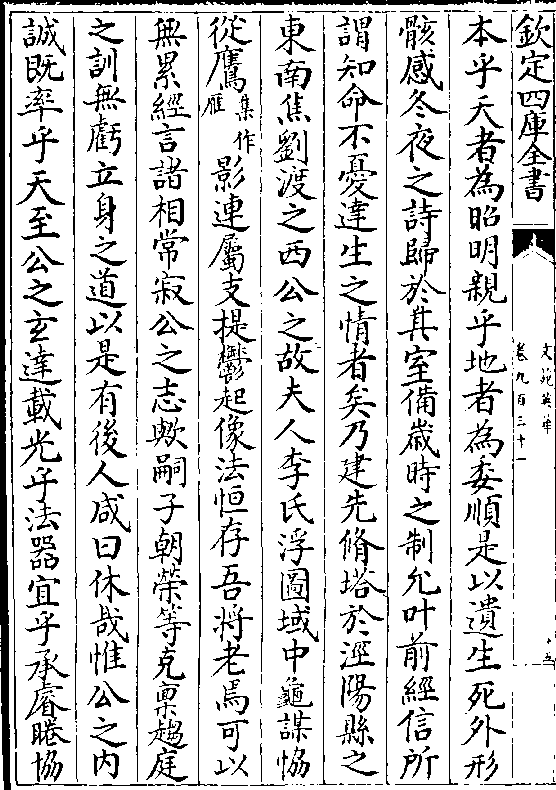 欽定四庫全書
文苑英華
卷九百三十一
本乎天者為昭明親乎地者為委順是以遺生死外形
骸感冬夜之詩歸於其室備歳時之制允叶前經信所
謂知命不憂達生之情者矣乃建先脩塔於涇陽縣之
東南焦劉渡之西公之故夫人李氏浮圖域中龜謀恊
從鷹集作雁影連屬支提鬱起像法恒存吾將老焉可以
無累經言諸相常寂公之志歟嗣子朝榮等克稟趨庭
之訓無虧立身之道以是有後人咸曰休哉惟公之内
誠既率乎天至公之玄達載光乎法器宜乎承睿睠協